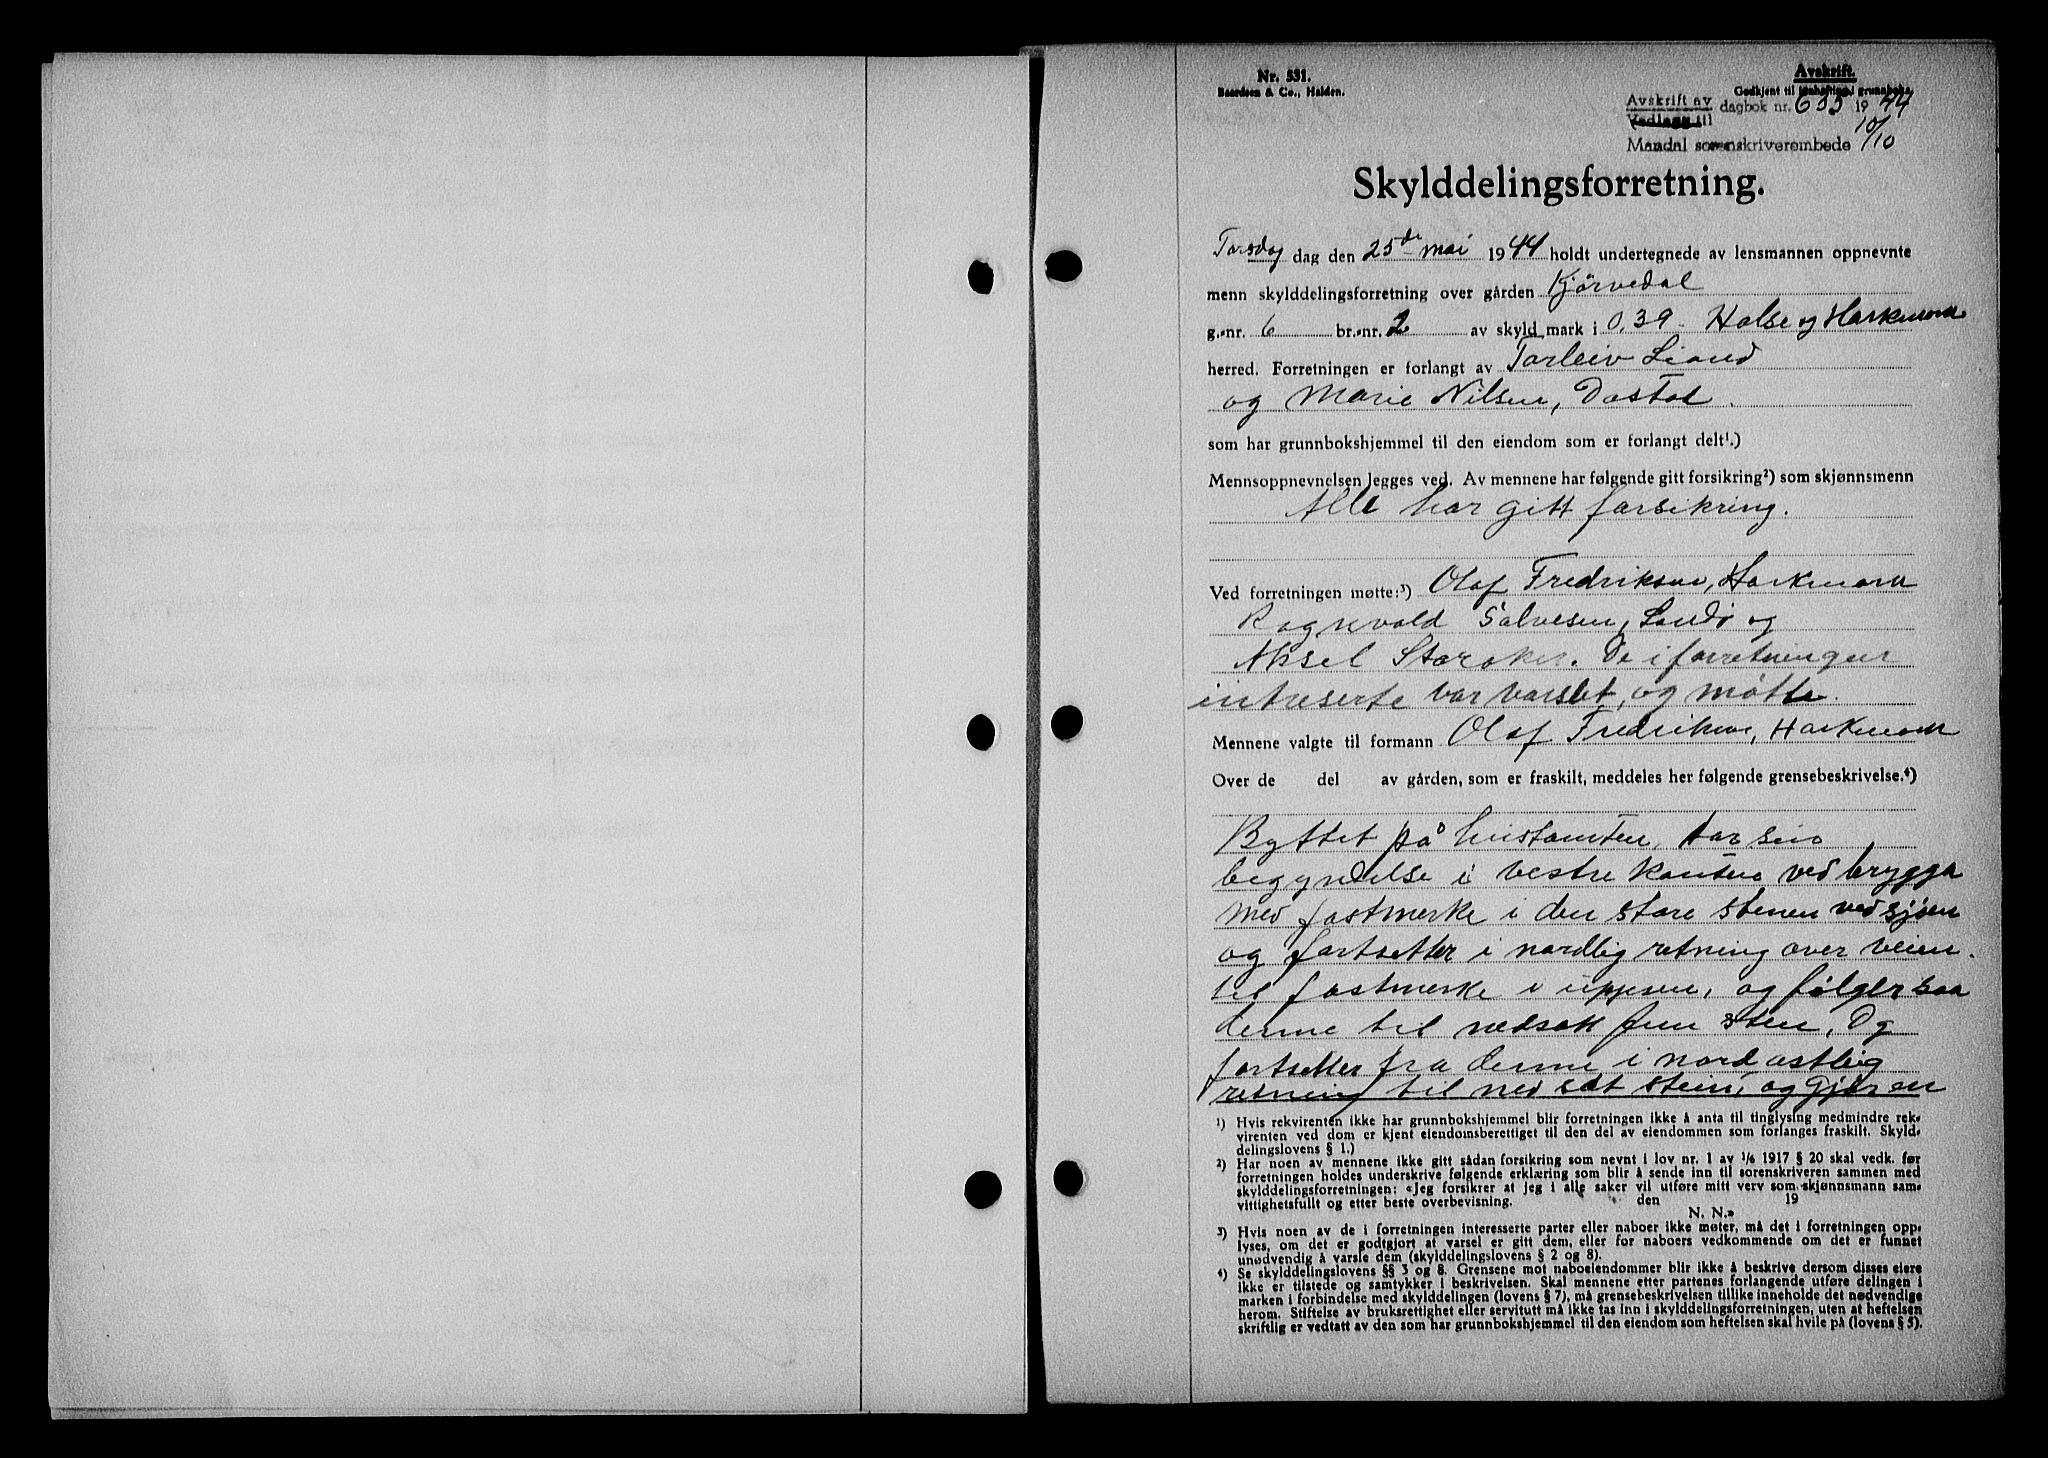 Nr. 531.
Baardsen & Co., Halden.
Avskrift.
Godkjent til innhefting i grunnboka
Avskrift av dagbok nr. 655 1944
Vedlegg til 10/10
Mandal sorenskriverembede
Skylddelingsforretning.
Torsdag dag den 25de mai 1944 holdt undertegnede av lensmannen oppnevnte
menn skylddelingsforretning over gården Kjørvedal
g.-nr. 6 br.-nr. 2 av skyld mark i 0,39 Halse og Harkmark
herred. Forretningen er forlangt av Torleiv Liand
og Marie Nilsen, Dastøl.
som har grunnbokshjemmel til den eiendom som er forlangt delt¹.)
Mennsoppnevnelsen legges ved. Av mennene har følgende gitt forsikring²) som skjønnsmenn
Alle har gitt forsikring.
Ved forretningen møtte:³) Olaf Fredriksen, Harkmark
Ragnvald Salvesen, Landø og
Aksel Storaker. De i forretningen
intreserte var varslet, og møtte.
Mennene valgte til formann Olaf Fredriksen, Harkmark
Over de del av gården, som er fraskilt, meddeles her følgende grensebeskrivelse.⁴)
Byttet på hustomten, tar sin
begyndelse i vestre kanten ved brygga
med fastmerke i den store stenen ved sjøen
og fortsetter i nordlig retning over veien
til fastmerke i uppsen, og følger saa
denne til nedsatt sten, Og
fortsetter fra denne i nordostlig
retning til nedsat stein, og gjør en
¹) Hvis rekvirenten ikke har grunnbokshjemmel blir forretningen ikke å anta til tinglysing medmindre rek-
virenten ved dom er kjent eiendomsberettiget til den del av eiendommen som forlanges fraskilt. Skyld-
delingslovens § 1.)
²) Har noen av mennene ikke gitt sådan forsikring som nevnt i lov nr. 1 av 1/6 1917 § 20 skal vedk. før
forretningen holdes underskrive følgende erklæring som blir å sende inn til sorenskriveren sammen med
skylddelingsforretningen: «Jeg forsikrer at jeg i alle saker vil utføre mitt verv som skjønnsmann sam-
vittighetsfullt og etter beste overbevisning. den 19
N. N.»
³) Hvis noen av de i forretningen interesserte parter eller naboer ikke møter, må det i forretningen opp-
lyses, om det er godtgjort at varsel er gitt dem, eller for naboers vedkommende om det er funnet
unødvendig å varsle dem (skylddelingslovens § 2 og 8).
⁴) Se skylddelingslovens §§ 3 og 8. Grensene mot naboeiendommer blir ikke å beskrive dersom disses eiere
ikke er tilstede og samtykker i beskrivelsen. Skal mennene etter partenes forlangende utføre delingen i
marken i forbindelse med skylddelingen (lovens § 7), må grensebeskrivelsen tillike inneholde det nødvendige
herom. Stiftelse av bruksrettighet eller servitutt må ikke tas inn i skylddelingsforretningen, uten at heftelsen
skriftlig er vedtatt av den som har grunnbokshjemmel til den eiendom som heftelsen skal hvile på (lovens § 5).